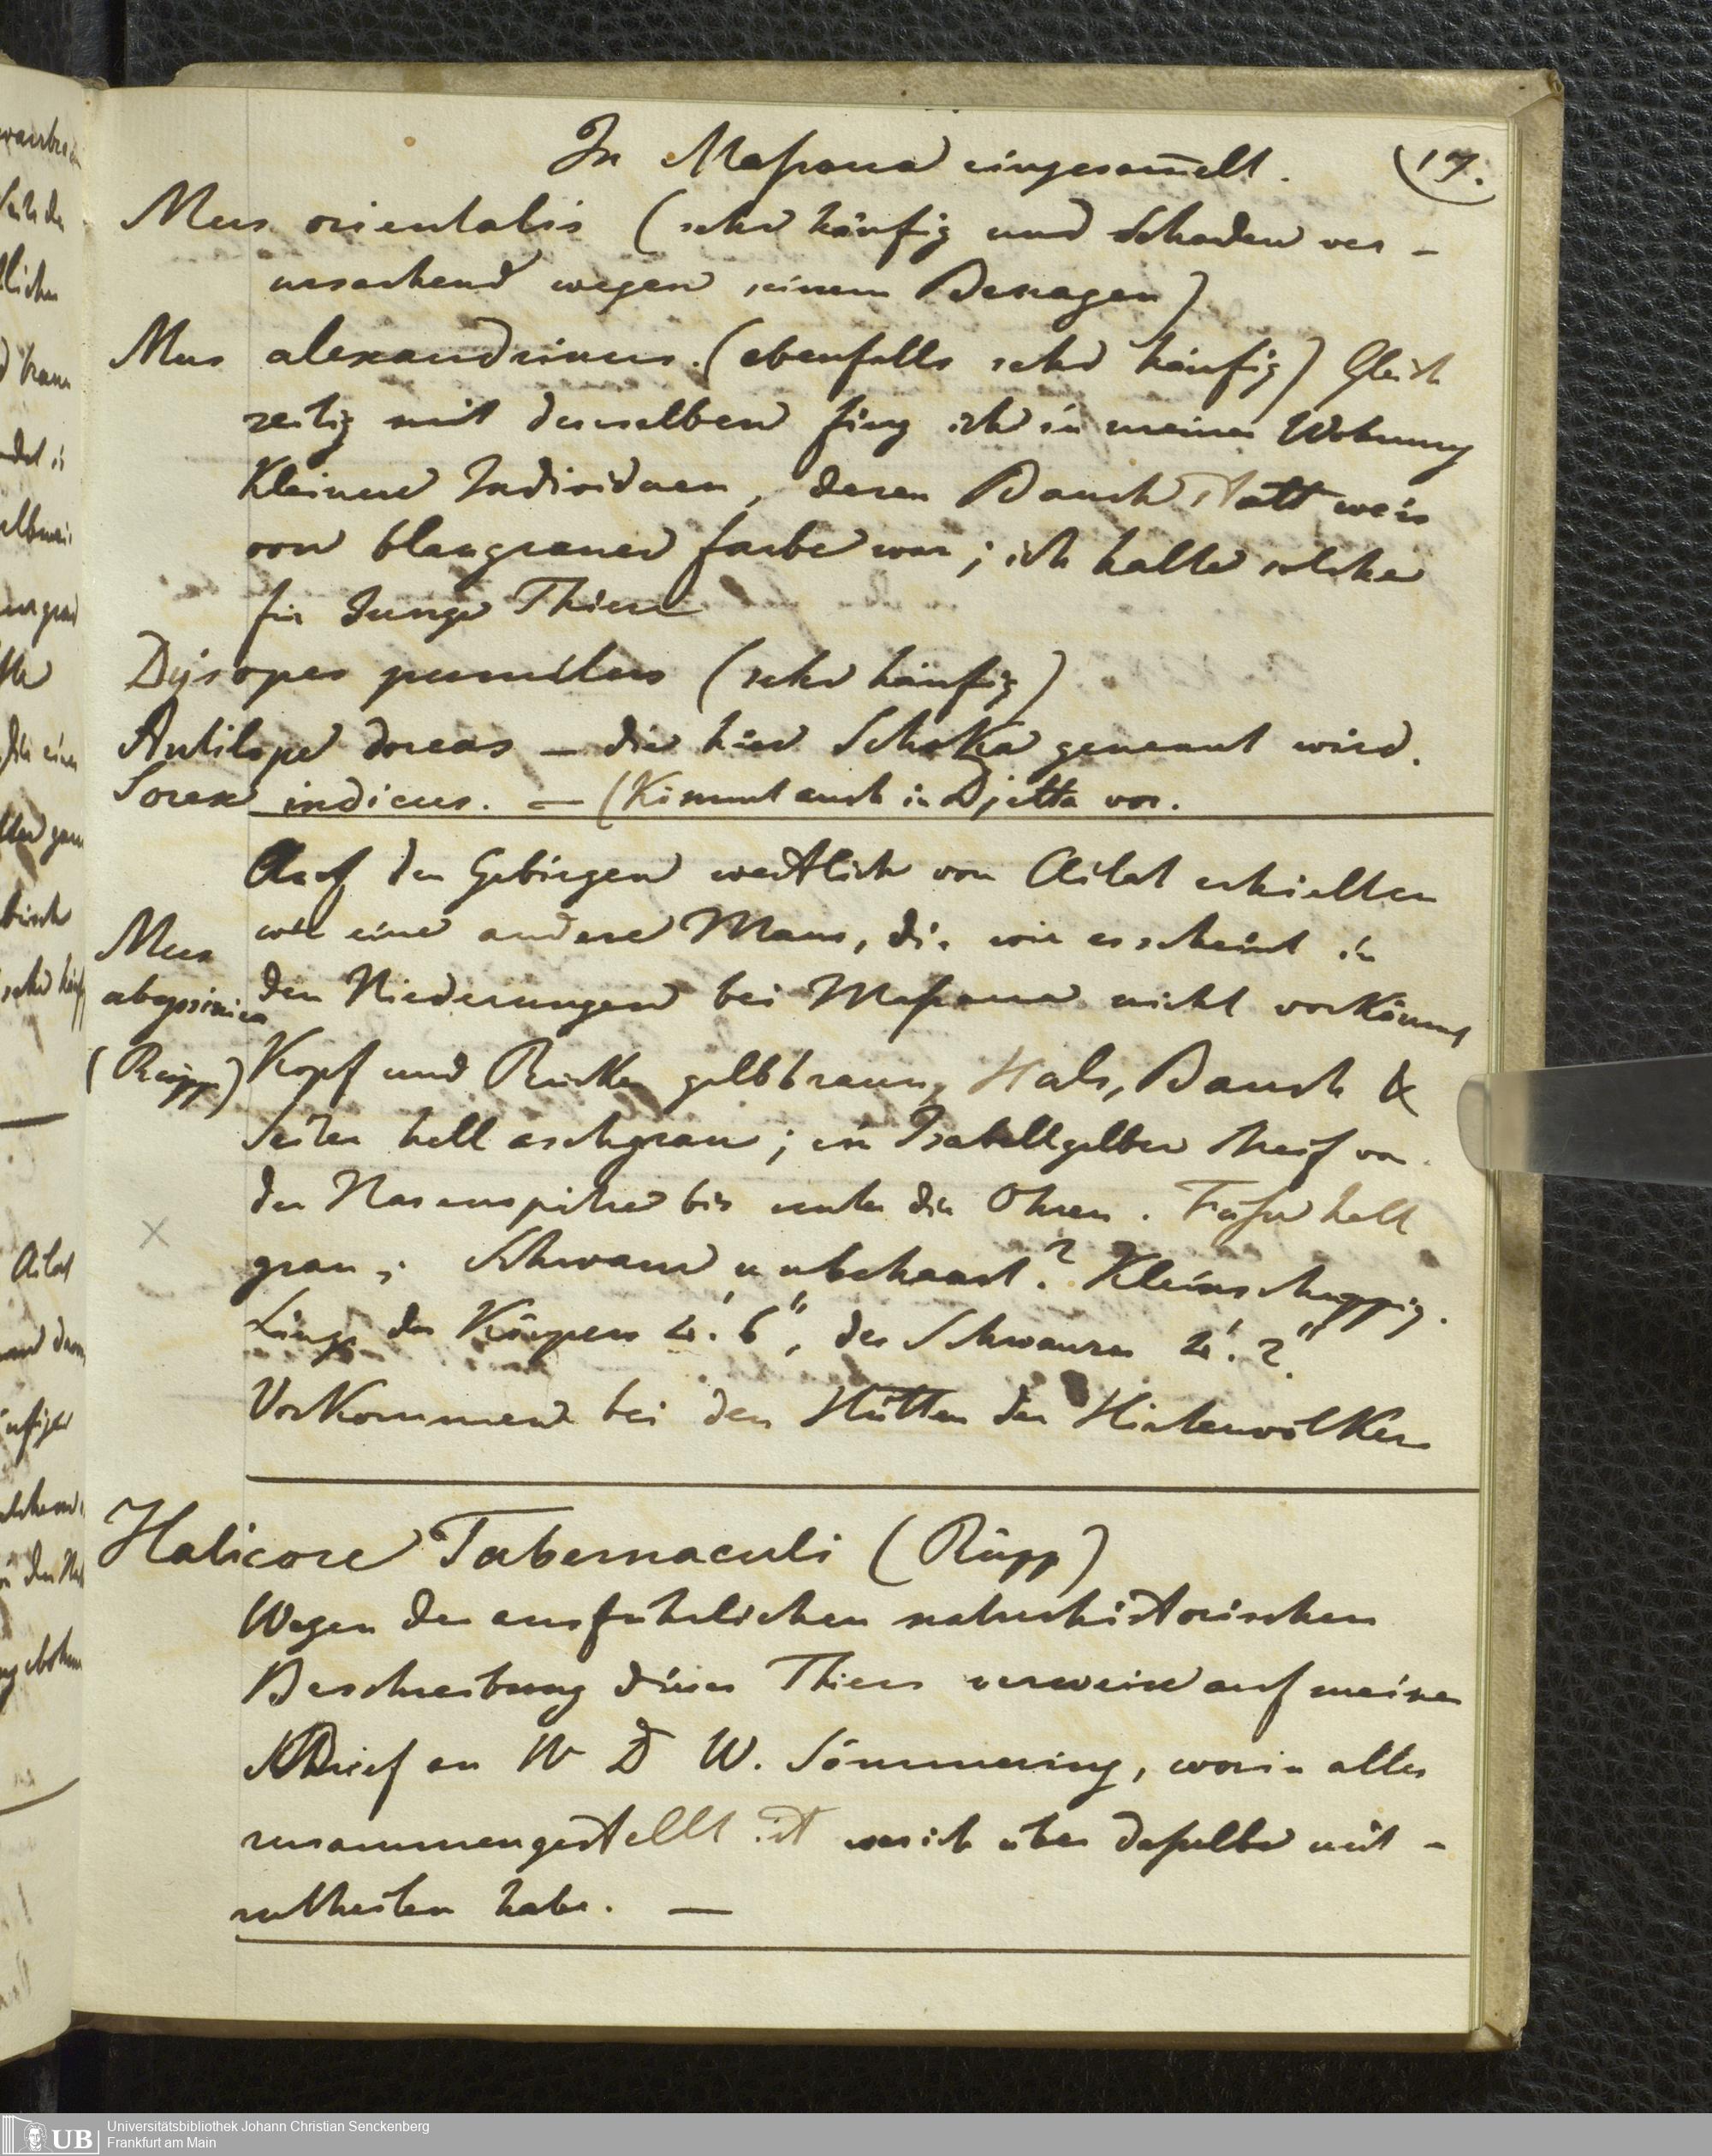 In Maſsaua eingesam̅elt.
17.
Mus orientalis (sehr häufig und Schaden ver-
ursachend wegen seinem Benagen)
Mus alexandrinus. (ebenfalls sehr häufig) Gleich
zeitig mit denselben fing ich in meiner Wohnung
Kleinere Individuen, deren Bauch statt weis
von blaugrauer farbe war; ich halte solche
für Junge Thiere
Dysopes pumilus (sehr häufig)
Antilope dorcas — die hier Schoka genannt wird.
Sorex indicus. — (Kommt auch in Djetta vor.
Auf den Gebirgen westlich von Ailat erhielten
wir eine andere Maus, die wie es scheint in
den Niederungen bei Maſsaua nicht vorkömmt
Mus
abyssinica
(Rüpp)
Kopf und Rücken gelbbraun, Hals, Bauch &
Seiten hell aschgrau; ein Isabellgelber Streif von
der Nasenspitze bis unter die Ohren. Füſse hell
grau; Schwanz unbehaart? Kleinschuppig.
Länge des Körpers 4'. 6", des Schwanzes 4'. 2"
Vorkommend bei den Hütten der Hirtenvölker
Halicore Tabernaculi (Rüpp)
Wegen der ausführlichen naturhistorischen
Beschreibung dieses Thiers verweise auf meinen
Brief an D W. Sömmering, worin alles
zusammengestellt ist was ich über daſselbe mit-
zutheilen habe. —
Universitätsbibliothek Johann Christian Senckenberg
Frankfurt am Main
UB